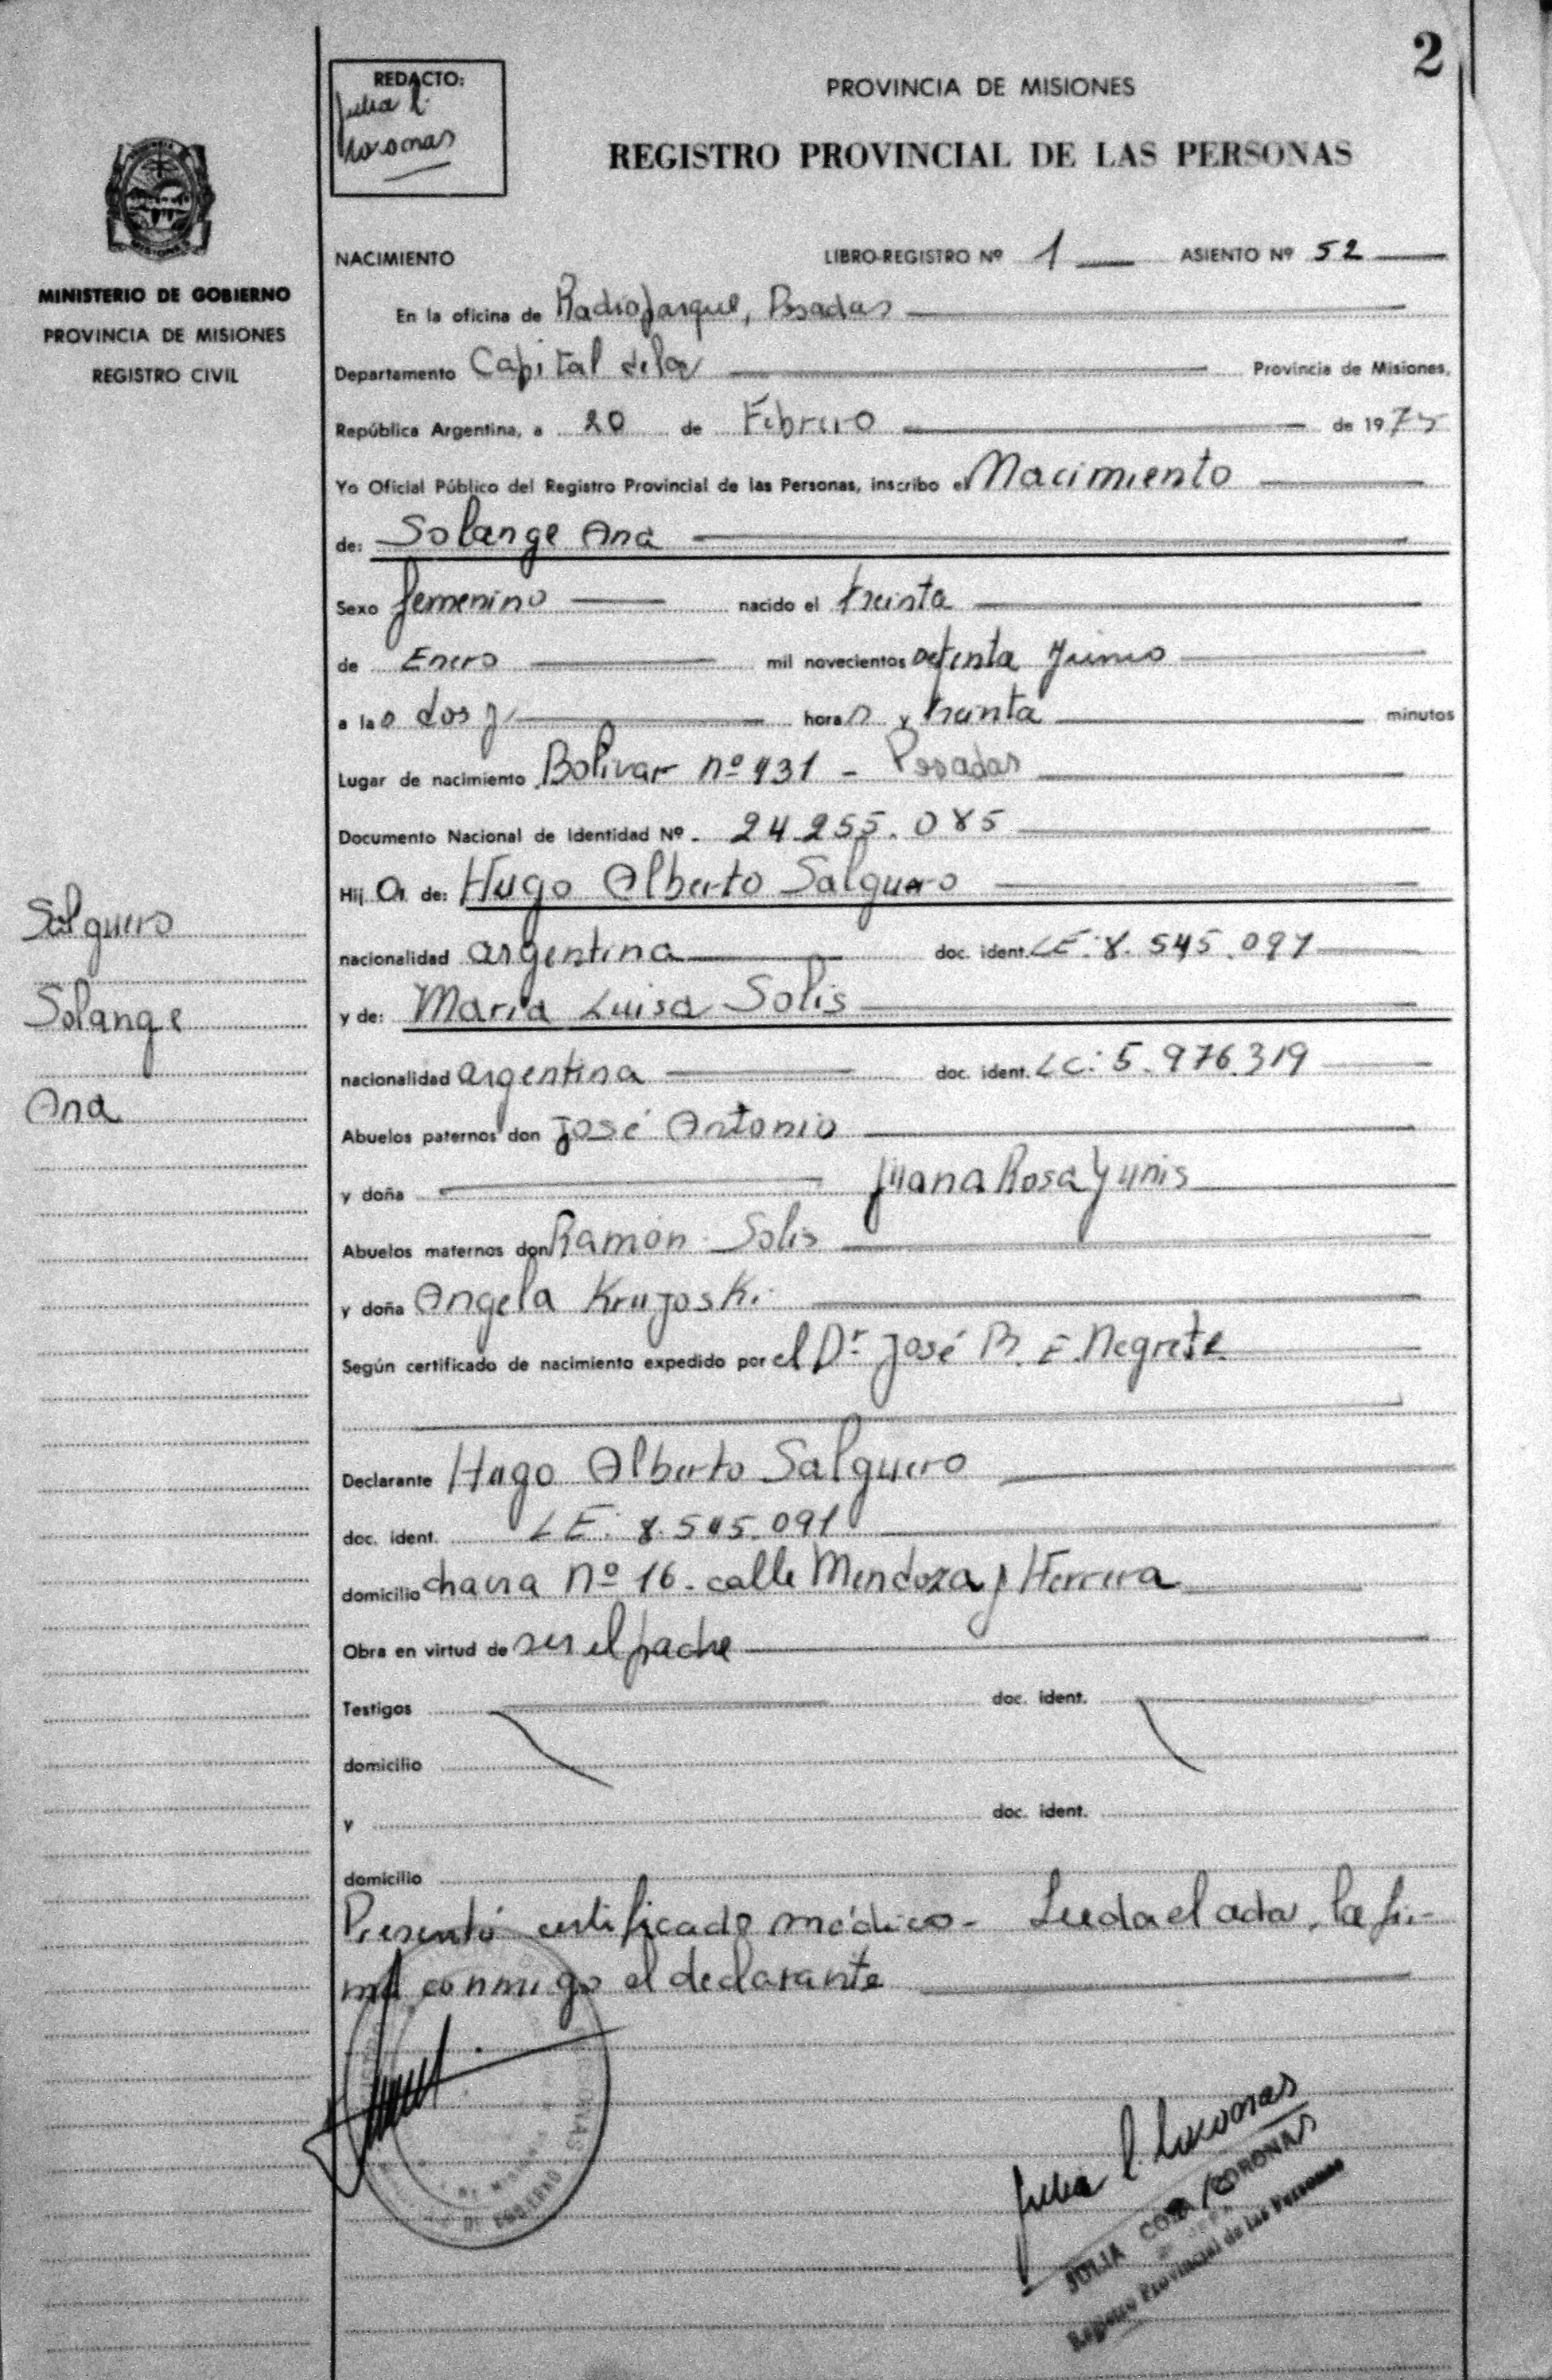 2
REDACTO:
Julia C.
Coronas
PROVINCIA DE MISIONES
REGISTRO PROVINCIAL DE LAS PERSONAS
MINISTERIO DE GOBIERNO
PROVINCIA DE MISIONES
REGISTRO CIVIL
NACIMIENTO LIBRO-REGISTRO Nº 1 ASIENTO Nº 52
En la oficina de Radioparque, Posadas
Departamento Capital de la Provincia de Misiones,
República Argentina, a 20 de Febrero de 1975
Yo Oficial Público del Registro Provincial de las Personas, inscribo el Nacimiento
de: Solange Ana
Sexo femenino nacido el treinta
de Enero mil novecientos setenta y cinco
a las dos y horas y treinta minutos
Lugar de nacimiento Bolivar nº 931 - Posadas
Documento Nacional de Identidad Nº. 24.255.085
Hija de: Hugo Alberto Salguero
nacionalidad argentina doc. ident. LE: 8.545.091
y de: Maria Luisa Solis
nacionalidad argentina doc. ident. LC: 5.976.319
Abuelos paternos don José Antonio
y doña Juana Rosa Yunis
Abuelos maternos don Ramón Solis
y doña Angela Krujoski
Según certificado de nacimiento expedido por el Dr José B. E. Negrete
Declarante Hugo Alberto Salguero
doc. ident. LE: 8.545.091
domicilio chacra nº 16 - calle Mendoza y Herrera
Obra en virtud de ser el padre
Testigos doc. ident.
domicilio
y doc. ident.
domicilio
Presentó certificado médico - Leida el acta, la fir-
ma conmigo el declarante
Salguero
Solange
Ana
Julia C. Coronas
JULIA CORONAS
Registro Provincial de las Personas